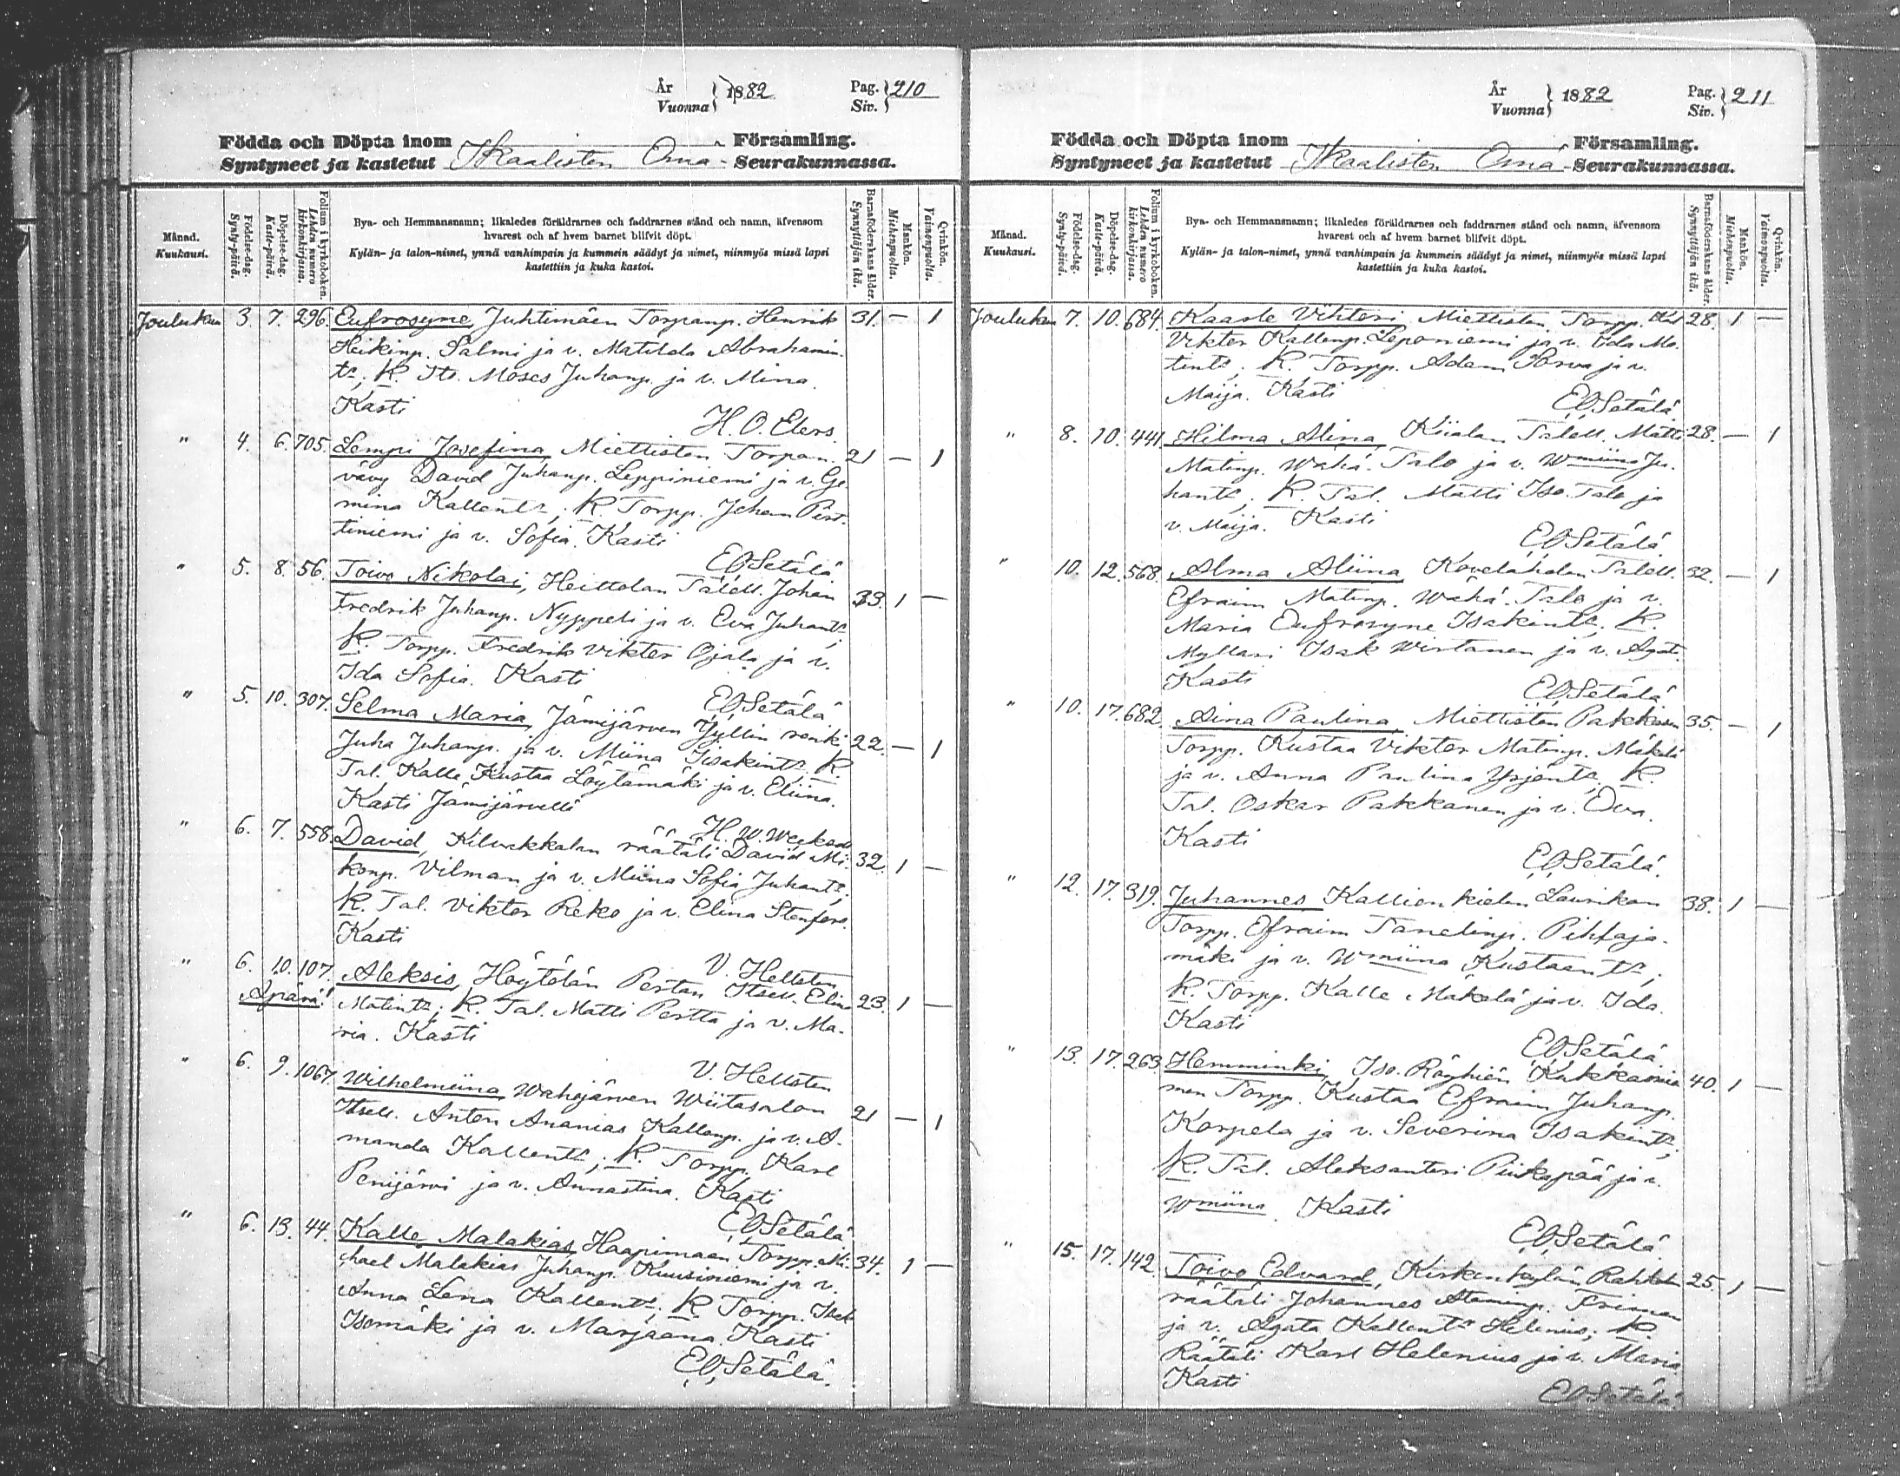 År
Vuonna } 1882
Pag.
Siv. } 210
Födda och Döpta inom Församling.
Syntyneet ja kastetut Ikaalisten Oma- Seurakunnassa.
Månad.
Kuukausi.
Födelse-dag.
Synty-päivä.
Döpelse-dag.
Kaste-päivä.
Folium i kyrkoboken.
Lehden numero kirkonkirjassa.
Bya- och Hemmansnamn; likaledes föräldrarnes och faddrarnes stånd och namn, äfvensom
hvarest och af hvem barnet blifvit döpt.
Kylän- ja talon-nimet, ynnä vanhimpain ja kummein säädyt ja nimet, niinmyös missä lapsi
kastettiin ja kuka kastoi.
Barnaföderskans ålder.
Synnyttäjän ikä.
Mankön.
Miehenpuolta.
Qvinkön.
Vaimonpuolta.
Joulukun 3. 7. 296. Eufrosyne, Juhtimäen Torpanp. Henrik 31. — 1
Heikinp. Salmi ja v. Matilda Abrahamin
tr; K. Its. Moses Juhanp. ja v. Mina.
Kasti
H. O. Elers.
" 4. 6. 705. Lempi Josefina, Miettisten Torpan 21 — 1
vävy David Juhanp. Leppiniemi ja v. Ge-
mina Kallentr; K. Torpp. Johan Pert-
tiniemi ja v. Sofia. Kasti
EOSetälä
" 5. 8. 56. Toivo Nikolai, Heittolan Talell. Johan 33. 1 —
Fredrik Juhanp. Nyppeli ja v. Eva Juhantr;
K. Torpp. Fredrik Vikter Ojala ja v.
Ida Sofia. Kasti
EOSetälä
" 5. 10. 307. Selma Maria, Jämijärven Jyllin renki 22. — 1
Juha Juhanp. ja v. Miina Iisakintr K.
Tal. Kalle Kustaa Löytämäki ja v. Eliina.
Kasti Jämijärvellä
H. W.
" 6. 7. 558. David, Kilvakkalan räätäli David Mi- 32. 1 —
konp. Vilman ja v. Miina Sofia Juhantr;
K. Tal. Vikter Reko ja v. Elina Stenfors.
Kasti
V. Hellsten
" 6. 10. 107. Aleksis, Höytölän Pertan Itsell. Elina 23. 1 —
Äpärä! Matintr; K. Tal. Matti Pertta ja v. Ma-
ria. Kasti
V. Hellsten
" 6. 9. 1067. Wilhelmiina, Wahojärven Wiitasalon 21 — 1
Itsell. Anton Ananias Kallenp. ja v. A-
manda Kallentr; K. Torpp. Karl
Penijärvi ja v. Annastina. Kasti
EOSetälä
" 6. 13. 44. Kalle Malakias, Haapimaan Torpp. Mi- 34. 1 —
chael Malakias Juhanp. Kuusiniemi ja v.
Anna Lena Kallentr; K. Torpp. Isak
Isomäki ja v. Marjaana. Kasti
EOSetälä.
År
Vuonna } 1882
Pag.
Siv. } 211
Födda och Döpta inom Församling.
Syntyneet ja kastetut Ikaalisten Oma- Seurakunnassa.
Månad.
Kuukausi.
Födelse-dag.
Synty-päivä.
Döpelse-dag.
Kaste-päivä.
Folium i kyrkoboken.
Lehden numero kirkonkirjassa.
Bya- och Hemmansnamn; likaledes föräldrarnes och faddrarnes stånd och namn, äfvensom
hvarest och af hvem barnet blifvit döpt.
Kylän- ja talon-nimet, ynnä vanhimpain ja kummein säädyt ja nimet, niinmyös missä lapsi
kastettiin ja kuka kastoi.
Barnaföderskans ålder.
Synnyttäjän ikä.
Mankön.
Miehenpuolta.
Qvinkön.
Vaimonpuolta.
Joulukun 7. 10. 684. Kaarle Vihteri Miettisten Torpp. 28. 1 —
Vikter Kallenp. Leponiemi ja v. Ida Ma-
tintr; K. Torpp. Adam Sorva ja v.
Maija. Kasti
EOSetälä
" 8. 10. 441. Hilma Alina, Kiialan Talell. Matti 28. — 1
Matinp. Wähä-Talo ja v. Wmiina Ju-
hantr; K. Tal. Matti Iso-Talo ja
v. Maija. Kasti
EOSetälä
" 10. 12. 568. Alma Aliina Kovelahden Talell. 32. — 1
Efraim Matinp. Wähä-Talo ja v.
Maria Eufrosyne Isakintr. K.
Mylläri Isak Wirtanen ja v. Agat.
Kasti
EOSetälä
" 10. 17. 682. Aina Paulina, Miettisten Pakkasen 35. — 1
Torpp. Kustaa Vikter Matinp. Mäkelä
ja v. Anna Paulina Yrjentr. K.
Tal. Oskar Pakkanen ja v. Eva.
Kasti
EOSetälä.
" 12. 17. 319. Juhannes Kallionkielen Laurikan 38. 1 —
Torpp. Efraim Tanelinp. Pihlaja-
mäki ja v. Wmiina Kustaantr;
K. Torpp. Kalle Mäkelä ja v. Ida.
Kasti
EOSetälä
" 13. 17. 263. Hemminki, Iso-Röyhiön 40. 1 —
men Torpp. Kustaa Efraim Juhanp.
Korpela ja v. Severina Isakintr;
K. Tal. Aleksanteri Piukapää ja v.
Wmiina Kasti
EOSetälä
" 15. 17. 142. Toivo Edvard, Kirkonkylän Rahkolan 25. 1 —
räätäli Johannes Ataminp. Friman
ja v. Agata Kallentr Helenius; K.
Räätäli Karl Helenius ja v. Maria
Kasti
EOSetälä